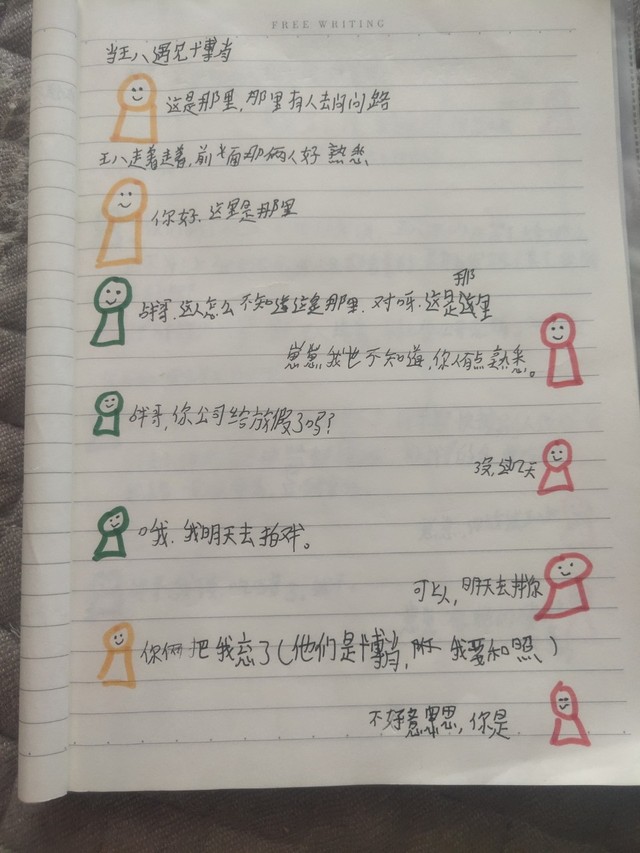 FREE WRITING
当王八遇见博肖
这是那里,那里有人去问问路
王八走着走着,前面那俩人好熟悉
你好.这里是那里
那
战哥.这人怎么不知道这是那里.对呀.这是这里
崽崽我也不知道,你有点熟悉。
战哥,你公司给放假了吗?
没,过几天
哦.我明天去拍戏。
可以,明天去找你
你俩把我忘了(他们是博肖,我要和照)
不好意思思,你是